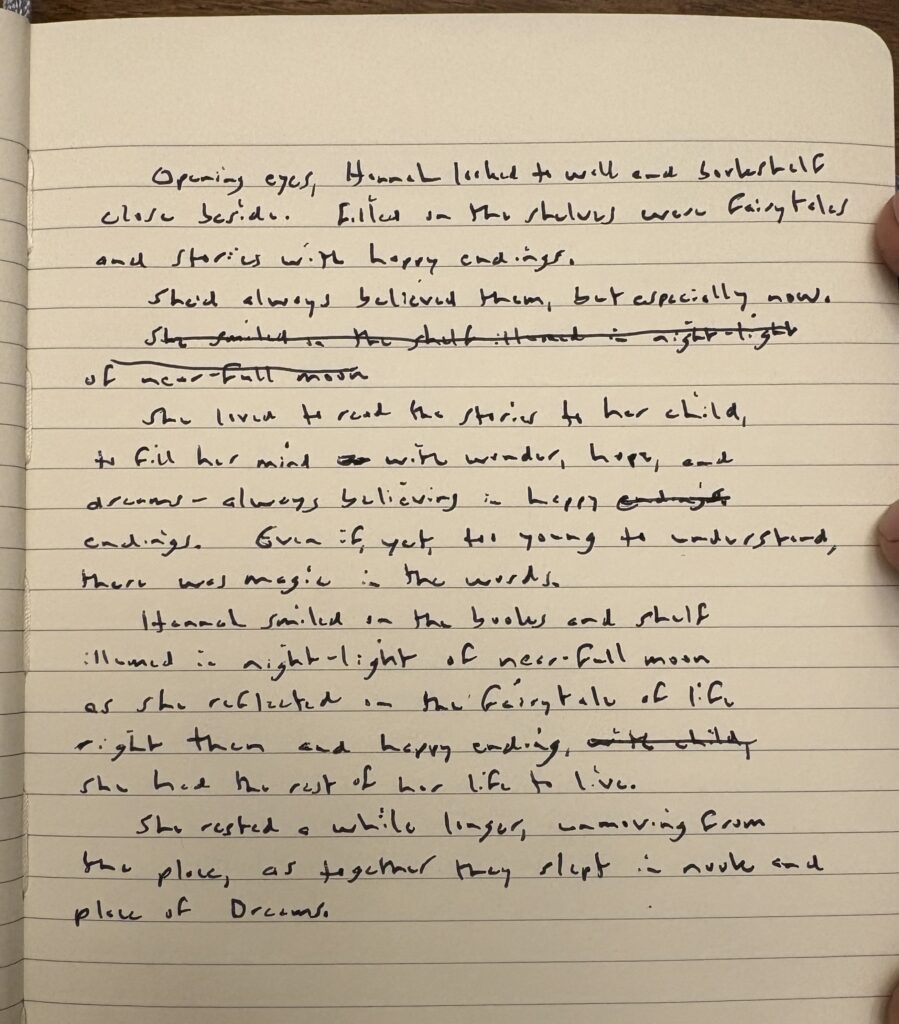 Opening eyes, Hannah looked to wall and bookshelf
close beside. Filled on the shelves were fairytales
and stories with happy endings.
She'd always believed them, but especially now.
She smiled on the shelf illumed in night-light
of near-full moon
She loved to read the stories to her child,
to fill her mind with wonder, hope, and
dreams - always believing in happy endings
endings. Even if, yet, too young to understand,
there was magic in the words.
Hannah smiled on the books and shelf
illumed in night-light of near-full moon
as she reflected on the fairytale of life
right then and happy ending, with child,
she had the rest of her life to live.
She rested a while longer, unmoving from
the place, as together they slept in nook and
place of Dreams.